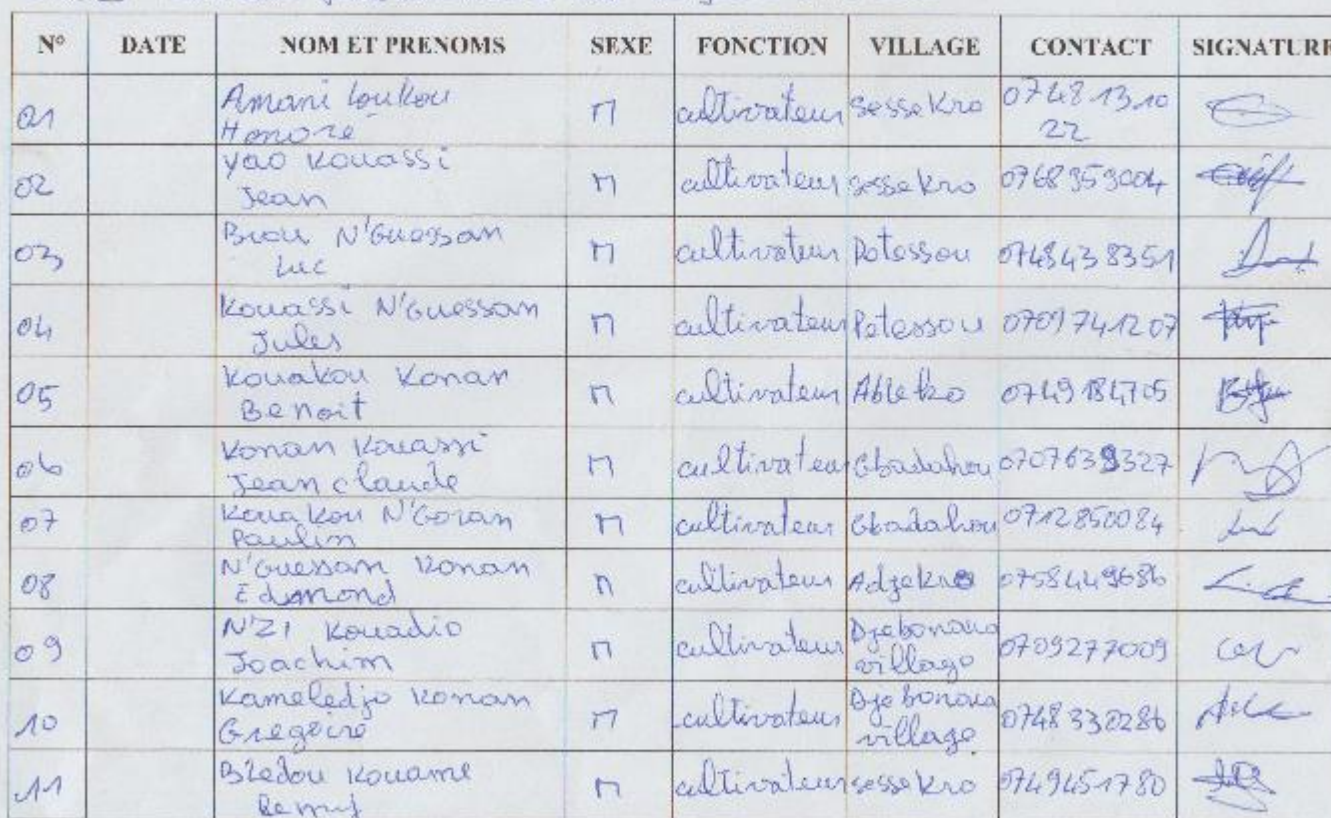 N° DATE NOM ET PRENOMS SEXE FONCTION VILLAGE CONTACT SIGNATURE
01 Amani Loukou Honoré M cultivateur sessekro 0748131022
02 Yao Kouassi Jean M cultivateur sessekro 0768959004
03 Brou N'Guessan Luc M cultivateur Potossou 0748438351
04 Kouassi N'Guessan Jules M cultivateur Potossou 0709741207
05 Kouakou Konan Benoit M cultivateur Ableko 0749184705
06 Konan Kouassi Jean claude M cultivateur Gbadahou 0707639327
07 Kouakou N'Goran Paulin M cultivateur Gbadahou 0712850084
08 N'Guessan Konan Edmond M cultivateur Adjekro 0758449686
09 N'ZI Kouadio Joachim M cultivateur Djebonoua village 0709277009
10 Kameledjo Konan Gregoire M cultivateur Djebonoua village 0748330286
11 Bledou Kouame Remy M cultivateur sessekro 0749451780